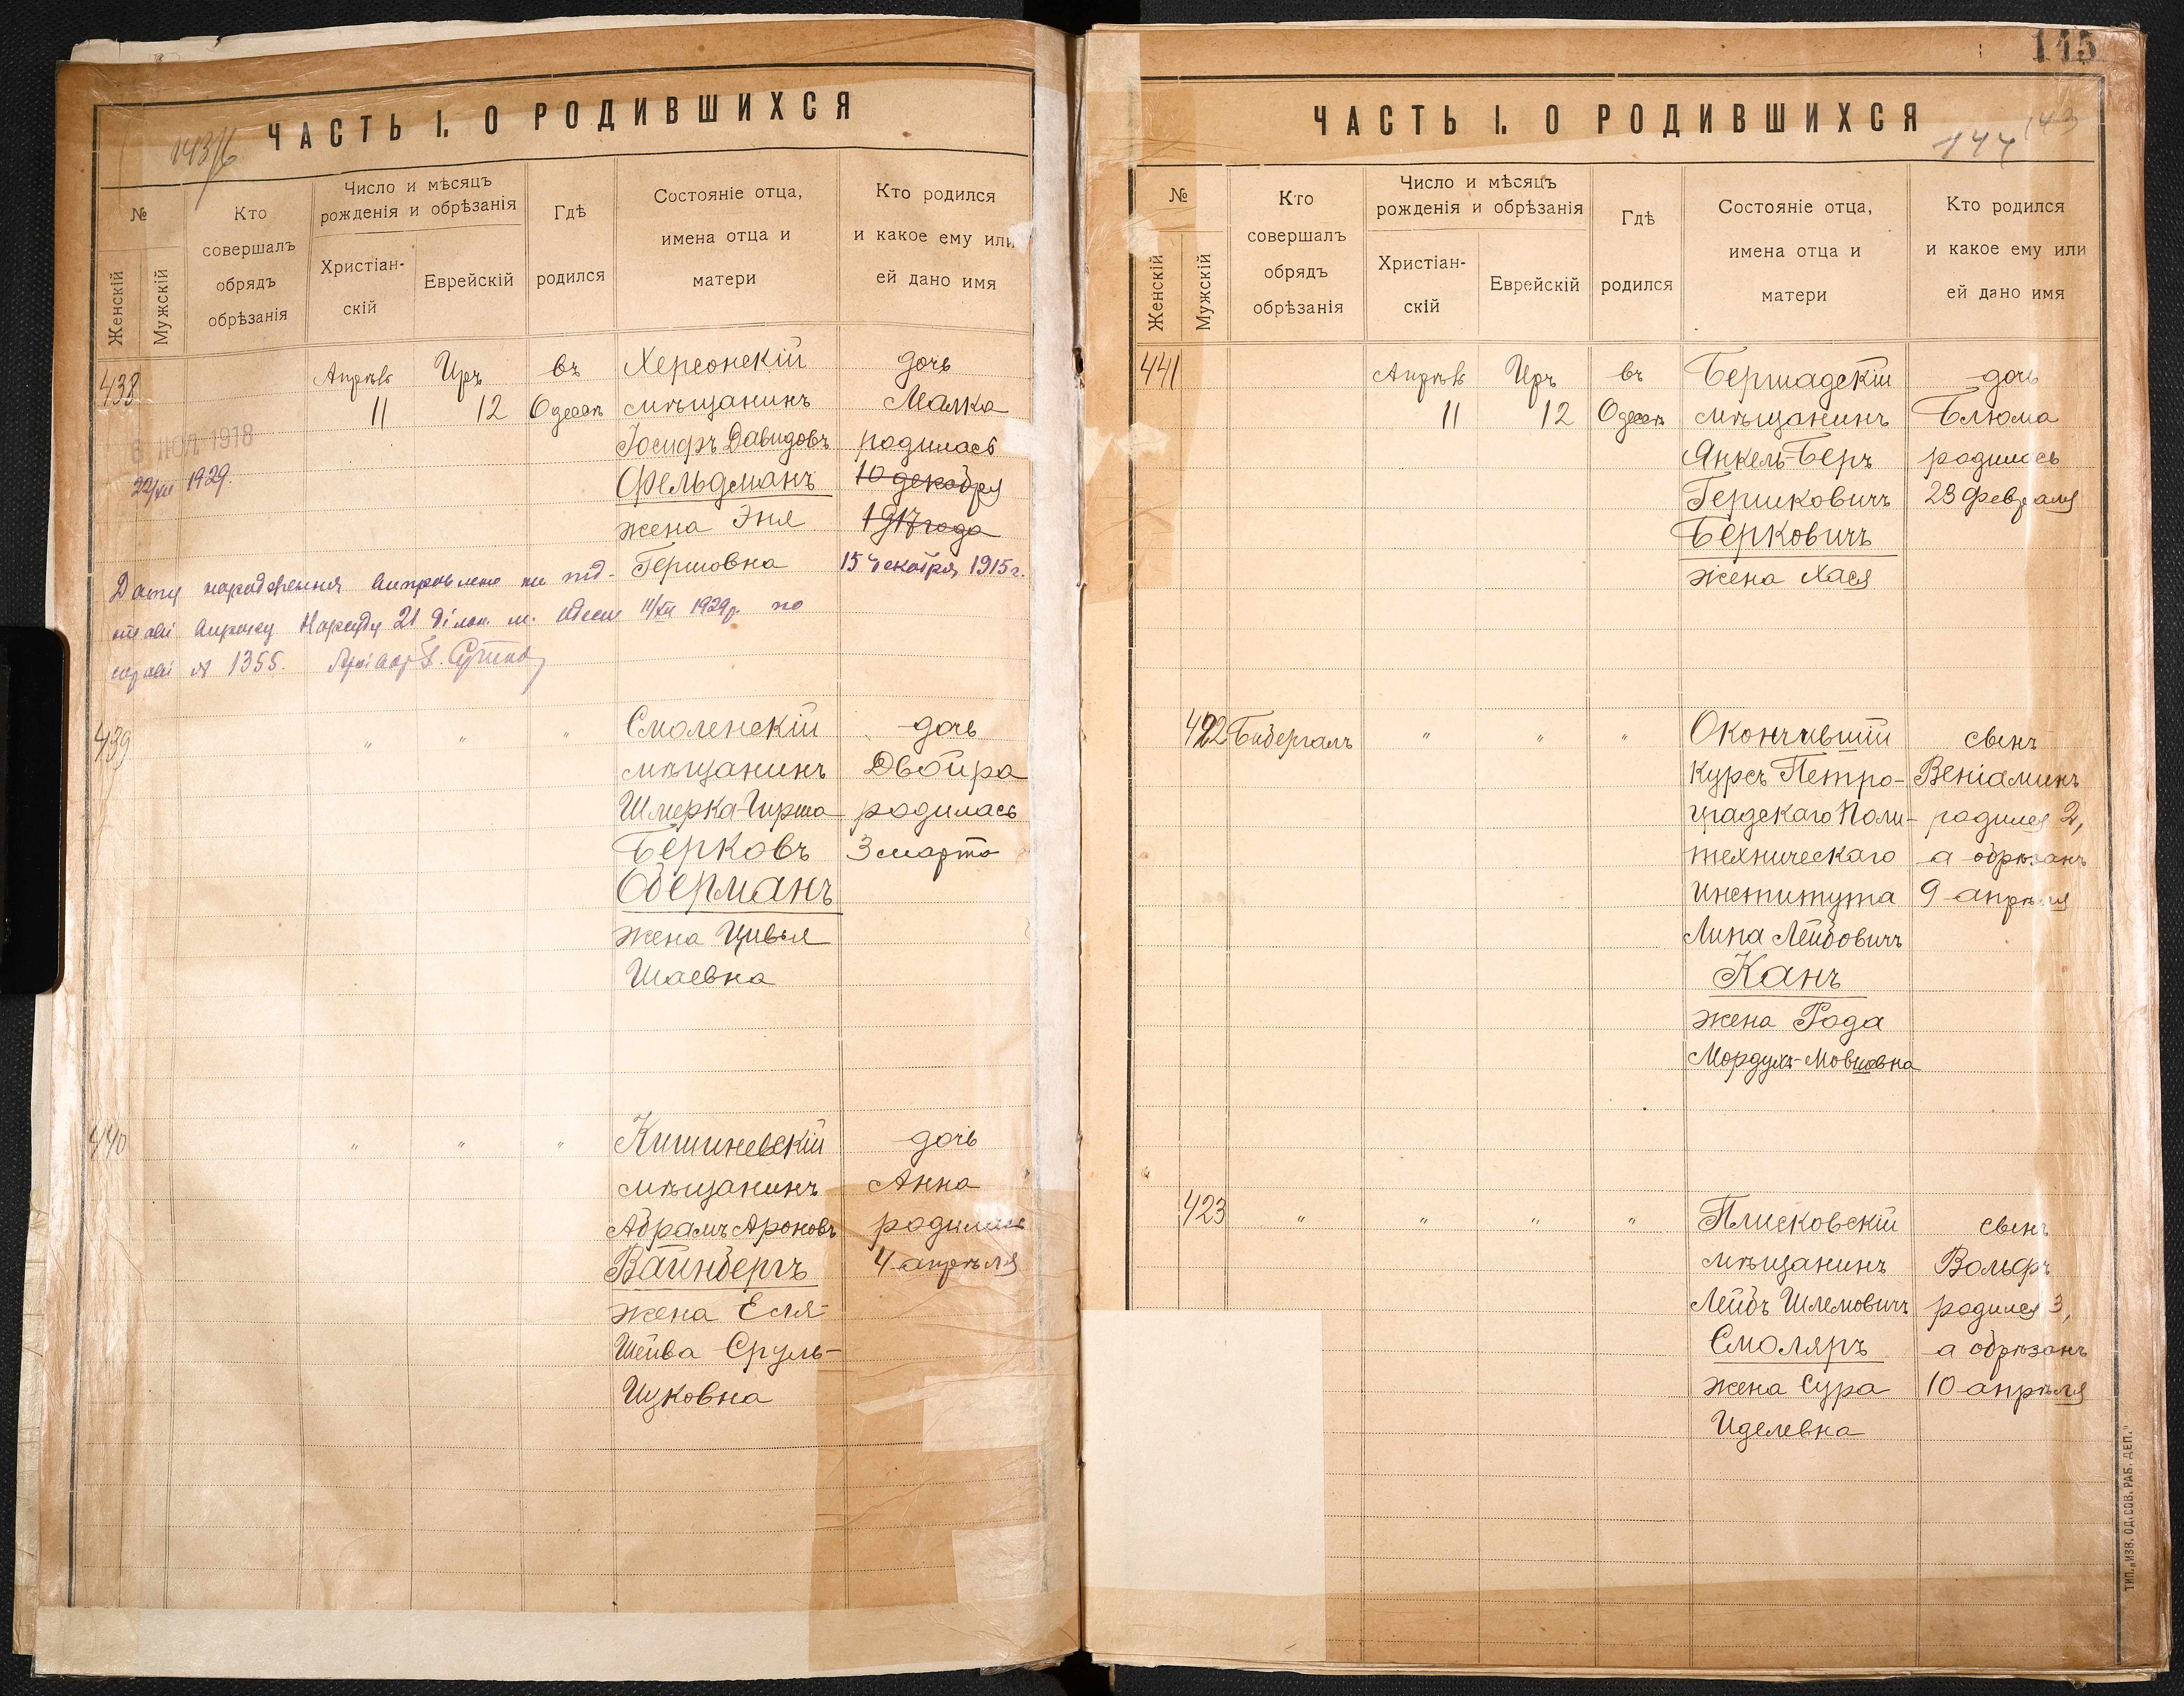 ЧАСТЬ I. О РОДИВШИХСЯ
№
Женскій
Мужскій
Кто
совершалъ
обрядъ
обрѣзанія
Число и мѣсяцъ
рожденія и обрѣзанія
Христіан-
скій
Еврейскій
Гдѣ
родился
Состояніе отца,
имена отца и
матери
Кто родился
и какое ему или
ей дано имя
438
Апрѣль
11
Иръ
12
въ
Одессѣ
Херсонскій
мѣщанинъ
Іосифъ Давидовъ
Фельдманъ
жена Эня
Гершовна
дочь
Малка
родилась
10 декабря
1917 года
15 декабря 1915 г.
6 ИЮЛ 1918
22/XII 1929.
Дату народження виправлено на під-
ставі вироку Нарсуду 21 дільн. м. Одеси 11/XII 1929 р. по
справі № 1355.
439
" " "
Смоленскій
мѣщанинъ
Шмерка-Гирша
Берковъ
Оберманъ
жена Цивья
Шаевна
дочь
Двойра
родилась
3 марта
440
" " "
Кишиневскій
мѣщанинъ
Абрамъ Ароновъ
Вайнбергъ
жена Есля-
Шейва Сруль-
Ицковна
дочь
Анна
родилась
4 апрѣля
115
ЧАСТЬ I. О РОДИВШИХСЯ
144 143
№
Женскій
Мужскій
Кто
совершалъ
обрядъ
обрѣзанія
Число и мѣсяцъ
рожденія и обрѣзанія
Христіан-
скій
Еврейскій
Гдѣ
родился
Состояніе отца,
имена отца и
матери
Кто родился
и какое ему или
ей дано имя
441
Апрѣль
11
Иръ
12
въ
Одессѣ
Бершадскій
мѣщанинъ
Янкель-Беръ
Гершковичъ
Берковичъ
жена Хася
дочь
Блюма
родилась
23 февраля
422
Бибергалъ
" " "
Окончившій
курсъ Петро-
градскаго Поли-
техническаго
Института
Липа Лейбовичъ
Канъ
жена Рода
Мордухъ-Мовшовна
сынъ
Веніаминъ
родился 2,
а обрѣзанъ
9 апрѣля
423
" " " "
Плисковскій
мѣщанинъ
Лейбъ Шлемовичъ
Смоляръ
жена Сура
Иделевна
сынъ
Вольфъ
родился 3,
а обрѣзанъ
10 апрѣля
ТИП. „ИЗВ. ОД. СОВ. РАБ. ДЕП."